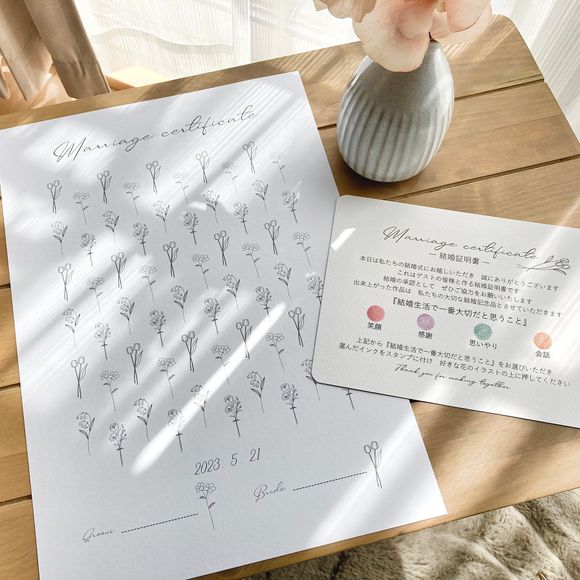 Marriage certificate
2023. 5. 21
Groom
Bride
Marriage certificate
― 結婚証明書 ―
本日は私たちの結婚式にお越しいただき 誠にありがとうございます
これはゲストの皆様と作る結婚証明書です
結婚の承認として ぜひご協力をお願いいたします
出来上がった作品は 私たちの大切な結婚記念品とさせていただきます
『結婚生活で一番大切だと思うこと』
笑顔 感謝 思いやり 会話
上記から『結婚生活で一番大切だと思うこと』をお選びいただき
選んだインクをスタンプに付け 好きな花のイラストの上に押してください
Thank you for making together